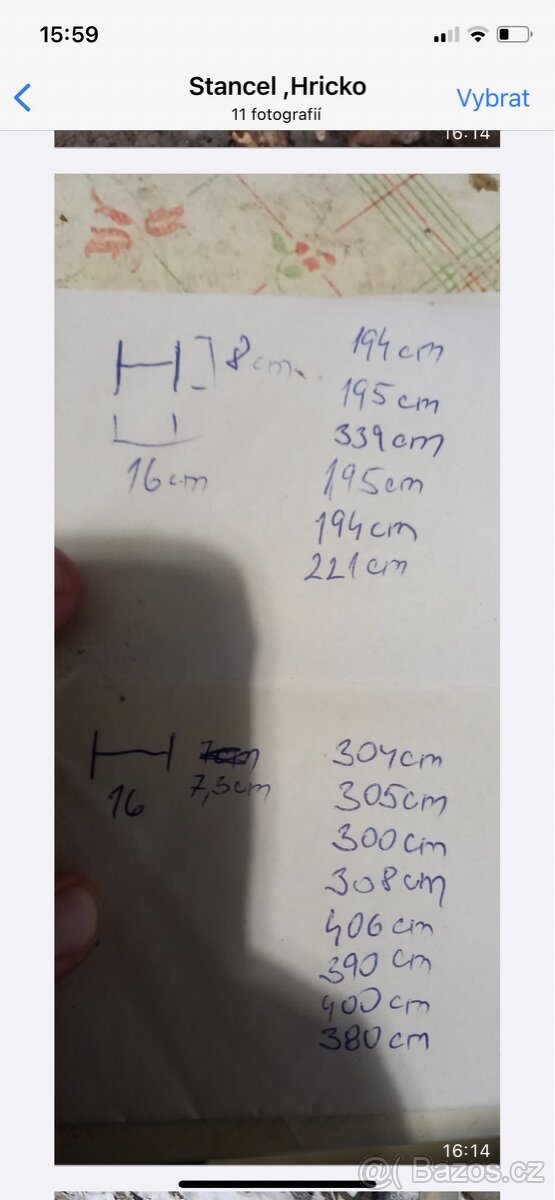 15:59
Stancel ,Hricko
11 fotografií
Vybrat
16:14
8cm
16cm
194cm
195cm
339cm
195cm
194cm
221cm
7cm
7,3cm
16
304cm
305cm
300cm
308cm
406cm
390cm
400cm
380cm
16:14
@( Bazos.cz